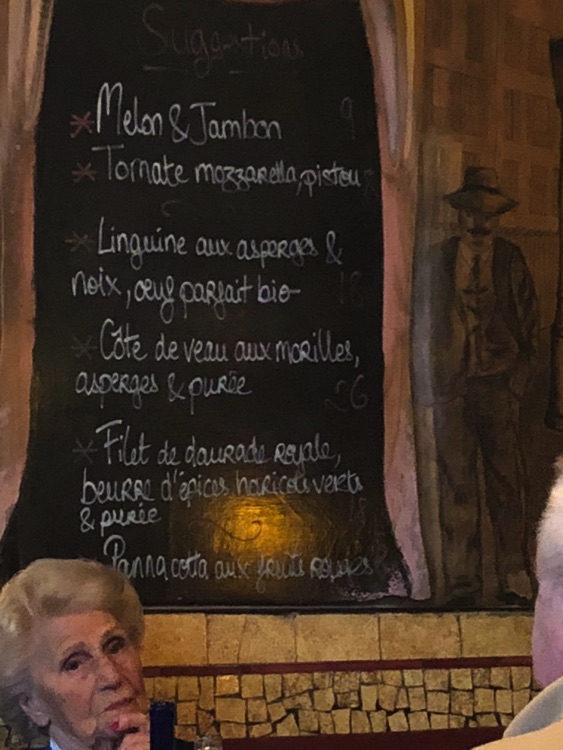 Suggestions
* Melon & Jambon 9
* Tomate mozzarella, pistou
* Linguine aux asperges &
noix, œuf parfait bio 18
* Côte de veau aux morilles,
asperges & purée 26
* Filet de daurade royale,
beurre d'épices haricots verts
& purée
Panna cotta aux fruits rouges